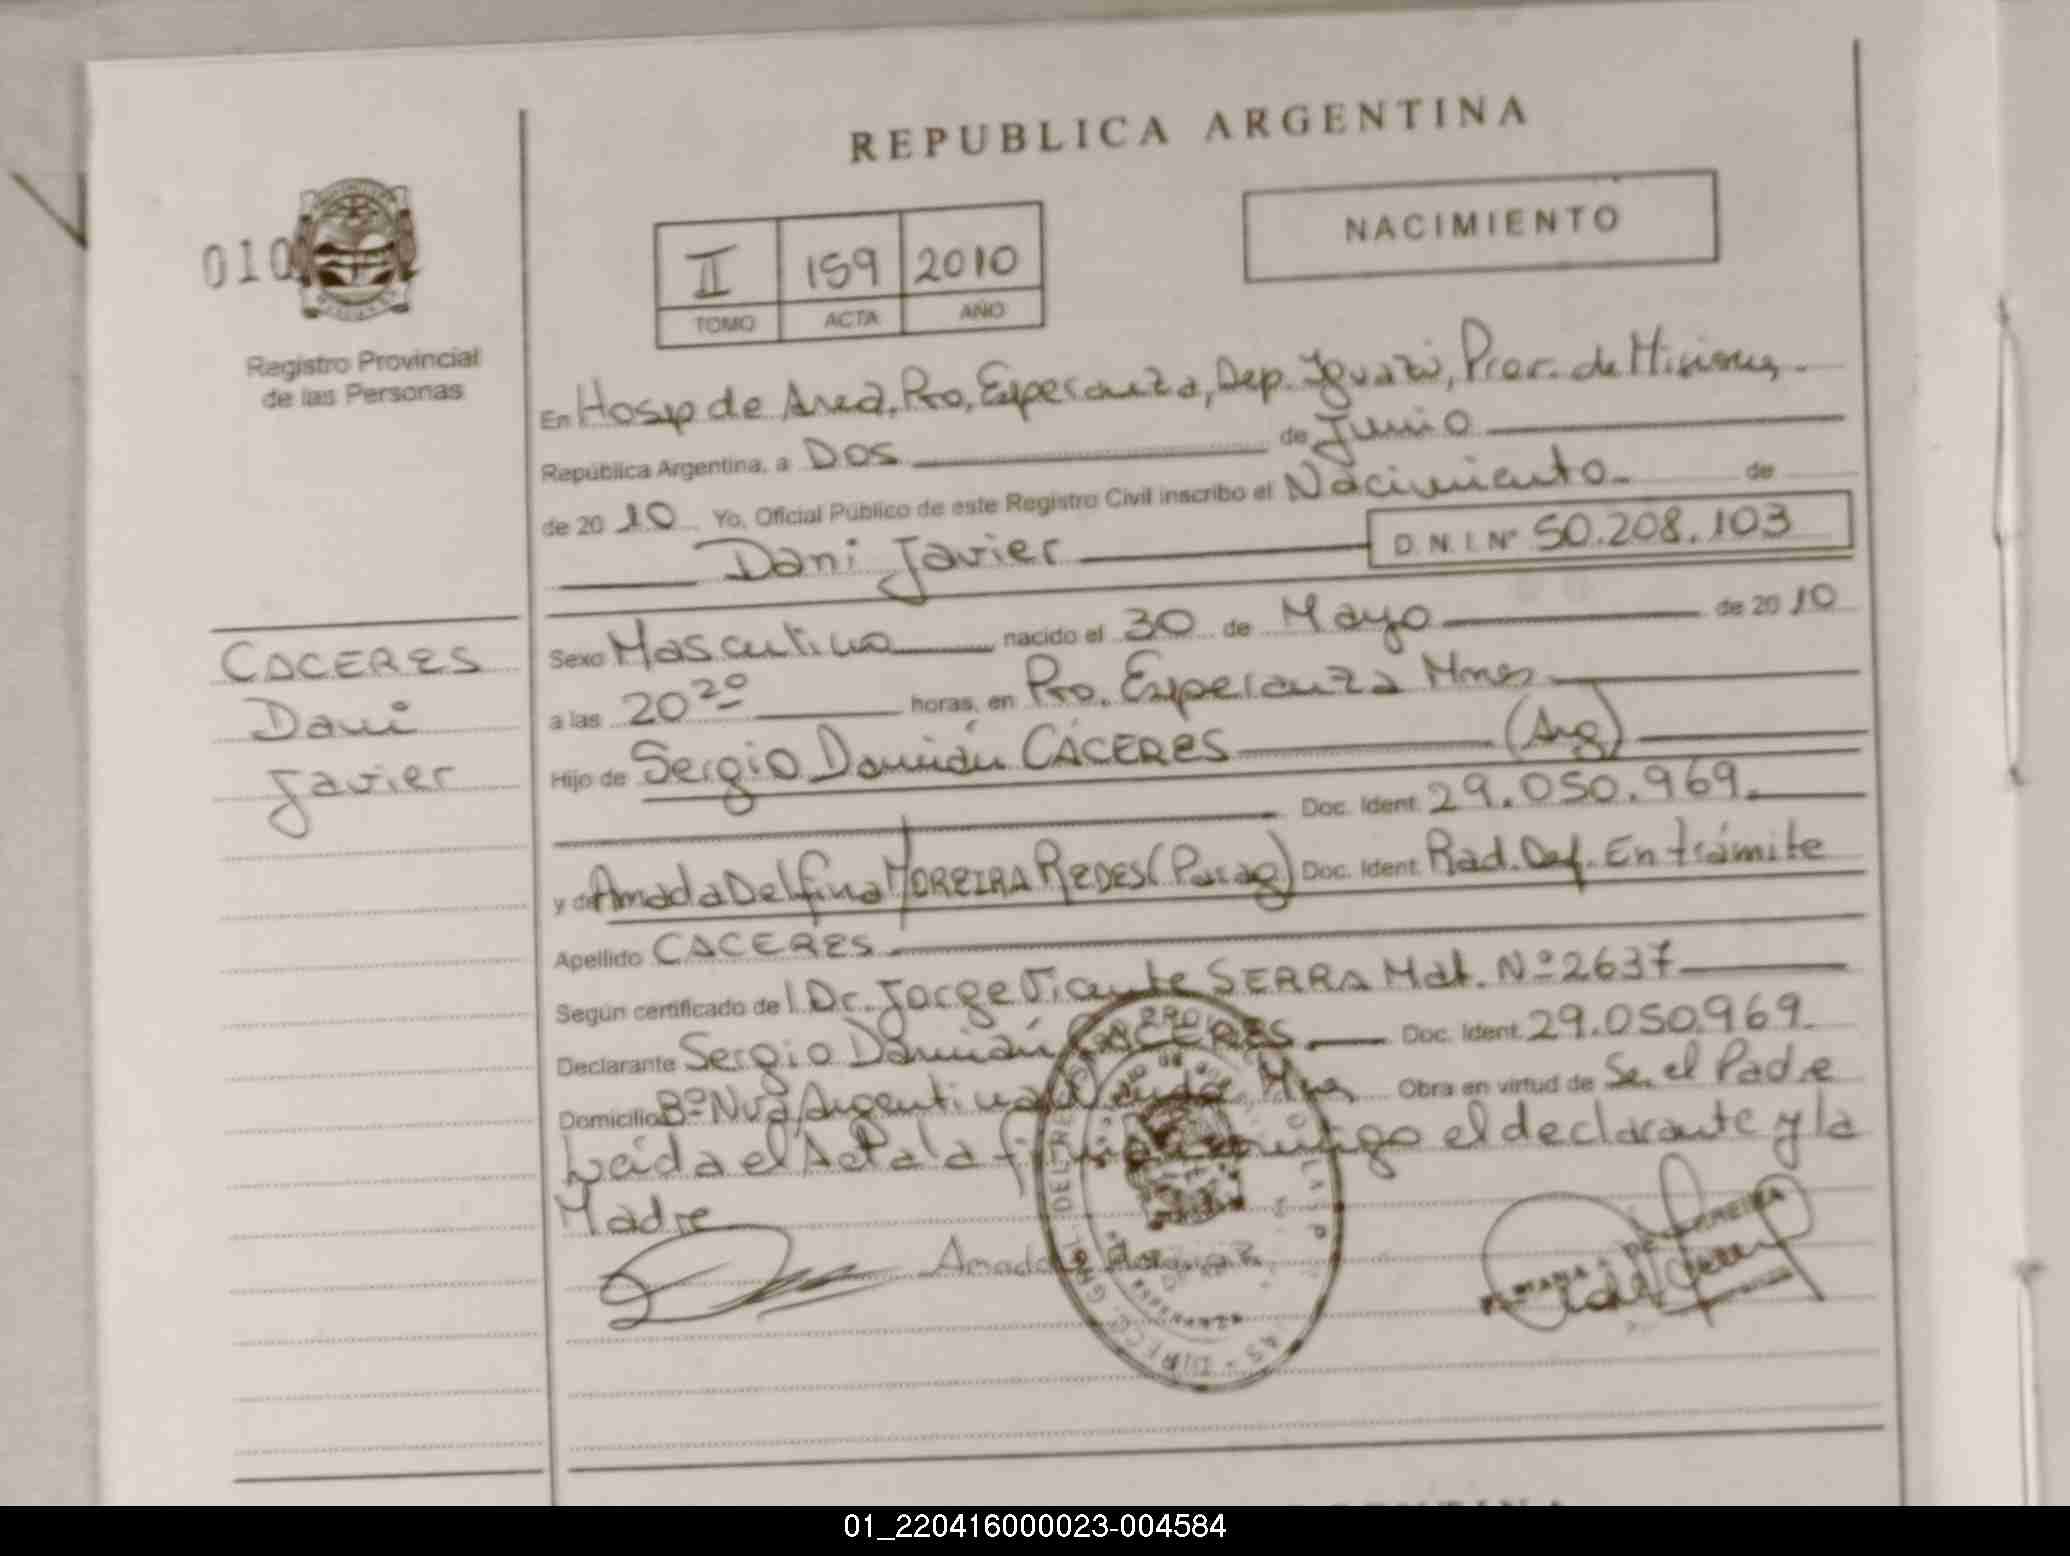 REPUBLICA ARGENTINA
NACIMIENTO
010
II 159 2010
TOMO ACTA AÑO
Registro Provincial
de las Personas
En Hosp de Area, Pto, Esperanza, Dep. Iguazú, Prov. de Misiones.
República Argentina, a Dos de Junio
de 20 10 Yo, Oficial Público de este Registro Civil inscribo el Nacimiento de
Dani Javier D. N. I. Nº 50.208.103
CACERES
Dani
Javier
Sexo Masculino nacido el 30 de Mayo de 20 10
a las 20 20 horas, en Pto. Esperanza Mnes
Hijo de Sergio Damián CÁCERES (Arg)
Doc. Ident. 29.050.969.
y de Amada Delfina MOREIRA REDES (Parag) Doc. Ident. Rad. Def. En trámite
Apellido CACERES
Según certificado de l Dr. Jorge Vicente SERRA Mat. Nº 2637
Declarante Sergio Damián CACERES Doc. Ident. 29.050.969.
Domicilio Bº Nva Argentina Mnes Obra en virtud de Ser el Padre
Leída el Acta la conmigo el declarante y la
Madre
Amada
01_220416000023-004584